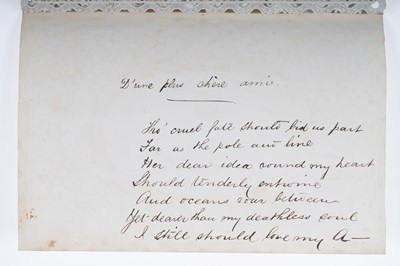 D'une plus chère amie.
Tho' cruel fate should bid us part
Far as the pole and line
Her dear idea round my heart
Should tenderly entwine
And oceans roar between
Yet dearer than my deathless soul
I still should love my A—